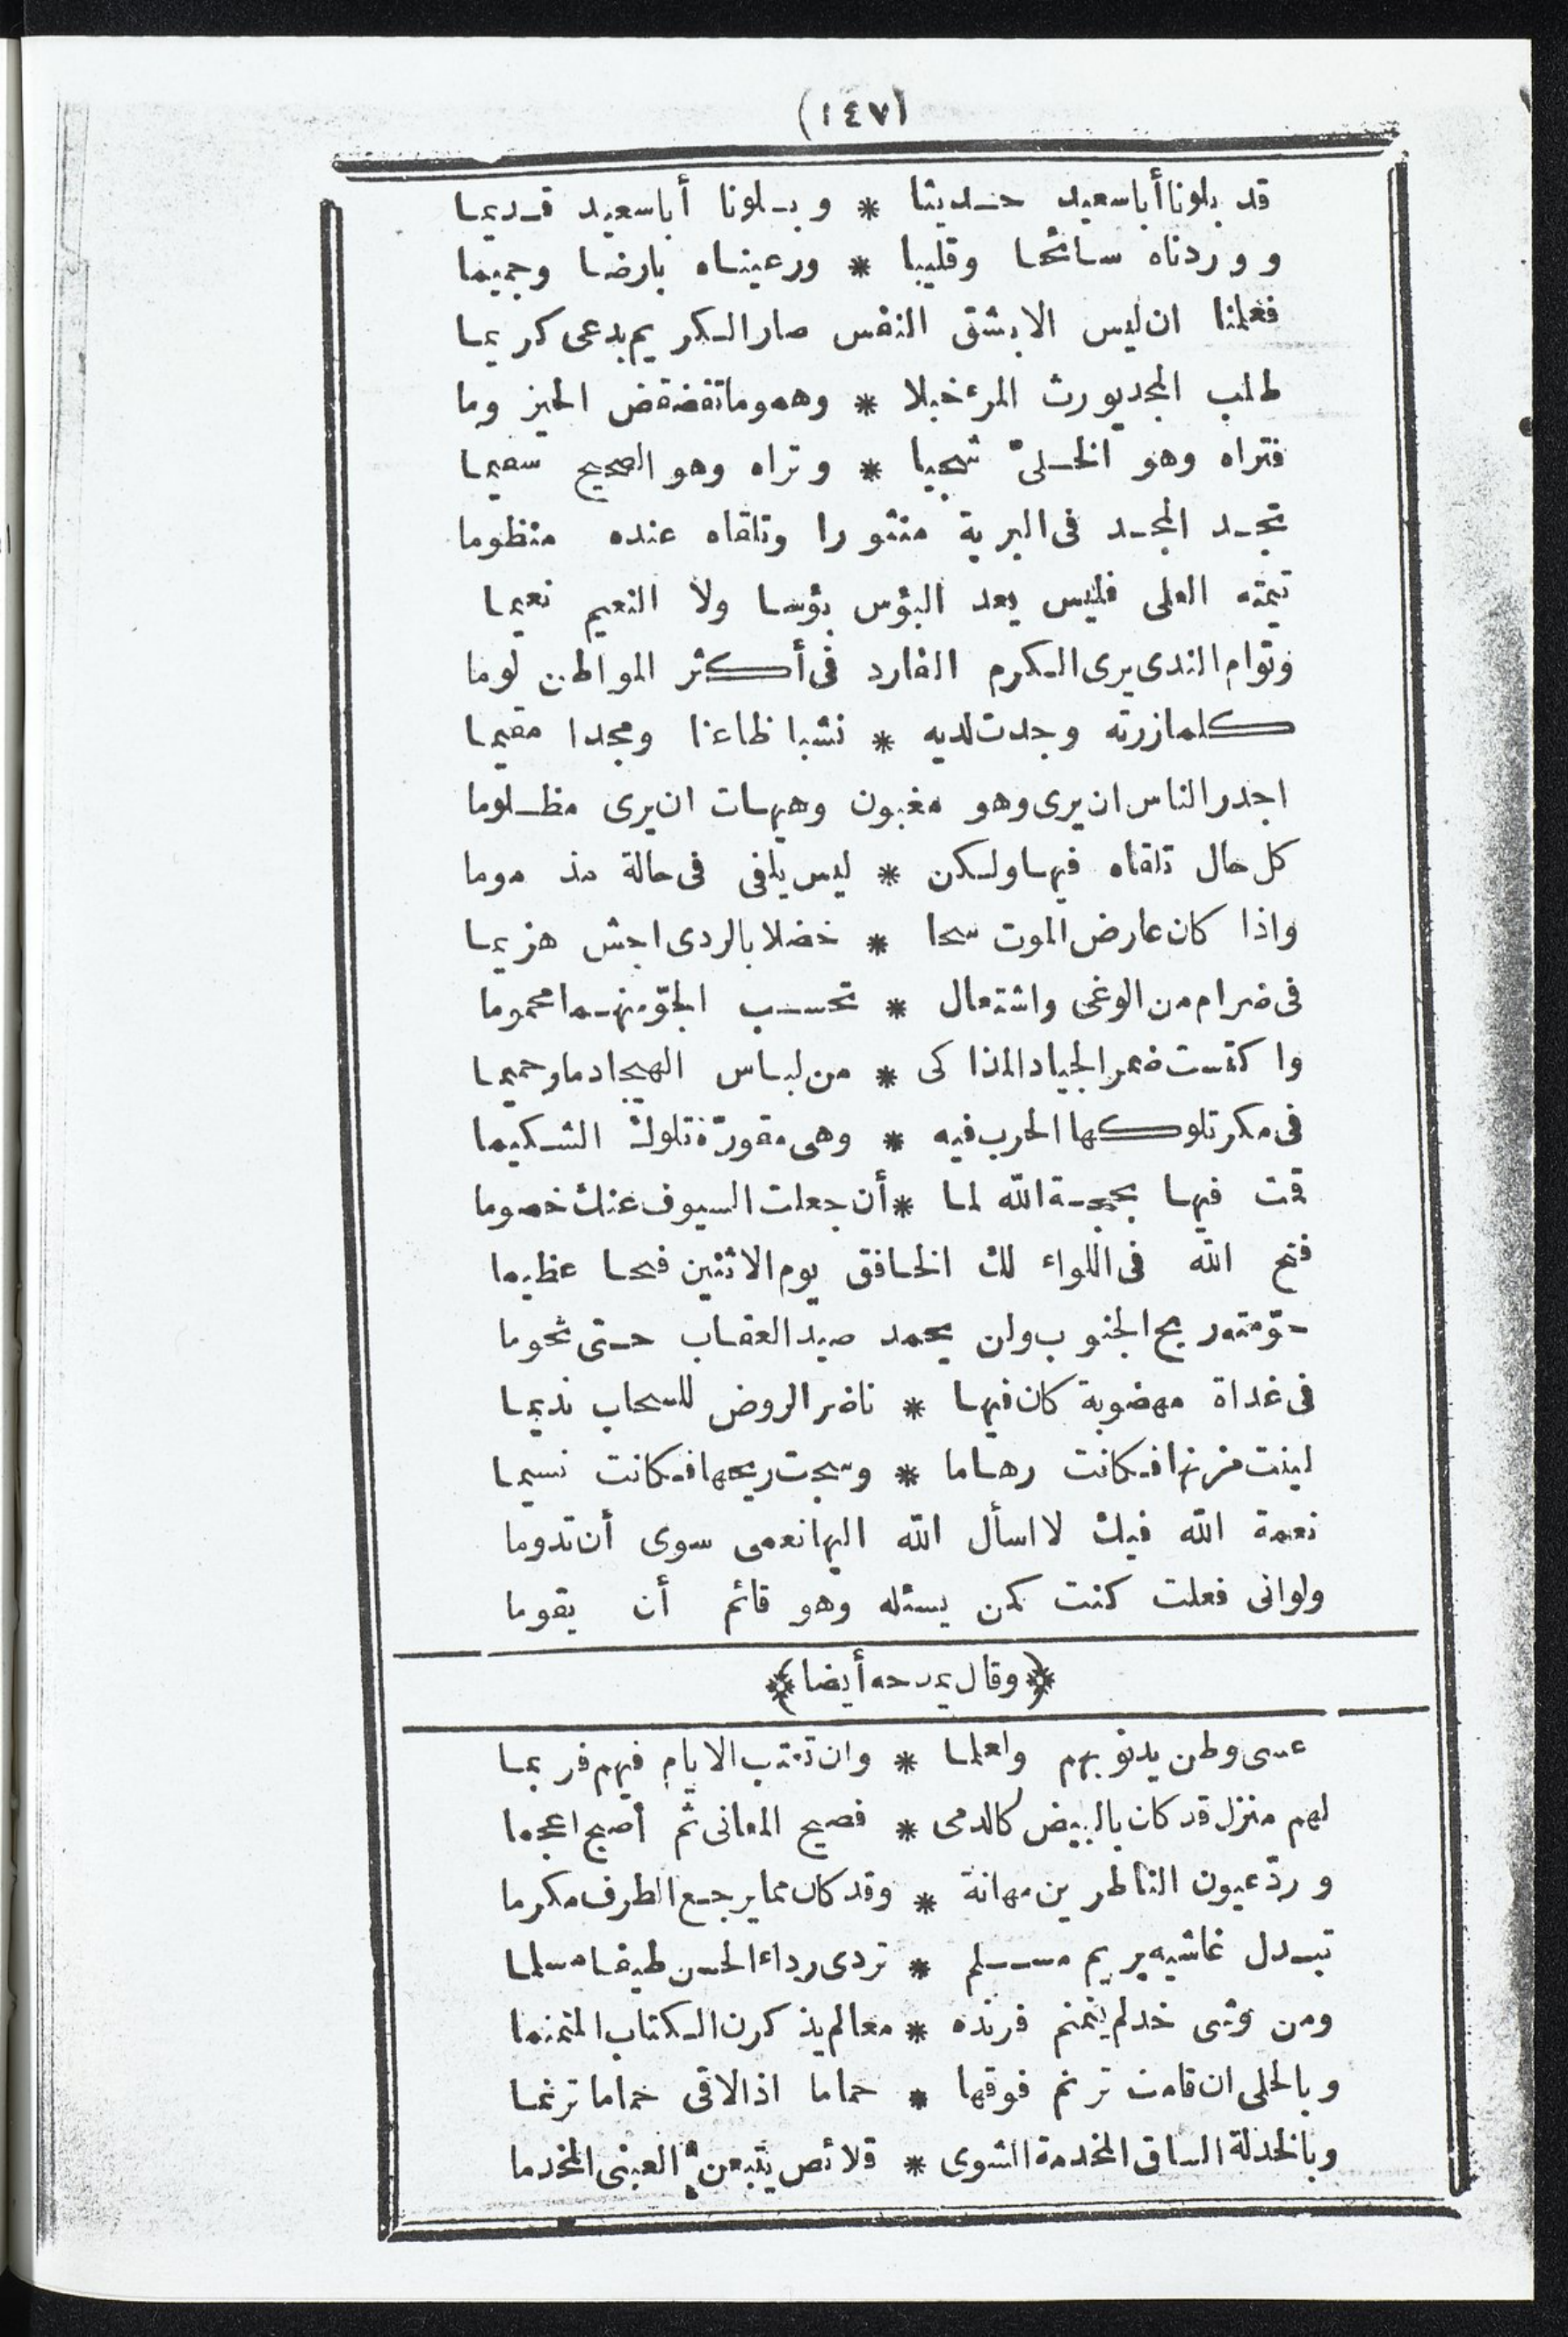 (١٤٧)
قد بلونا أبا سعيد حديثا * وبلونا أبا سعيد قديما
ووردناه سائحا وقليبا * ورعيناه بارضا وجميما
فعلمنا ان ليس الا بشق النفس صار الكريم يدعى كريما
طلب المجد يورث المرء خبلا * وهموما تقضقض الحيزوما
فتراه وهو الخلىّ شجيا * وتراه وهو الصحيح سقيما
تجد المجد فى البرية منثورا وتلقاه عنده منظوما
تيمته العلى فليس يعد البؤس بؤسا ولا النعيم نعيما
وتوام الندى يرى الكرم الفارد فى أكثر المواطن لوما
كلما زرته وجدت لديه * نشبا ظاعنا ومجدا مقيما
اجدر الناس ان يرى وهو مغبون وهيهات ان يرى مظلوما
كل حال تلقاه فيها ولكن * ليس يلفى فى حالة مذموما
واذا كان عارض الموت سحا * خضلا بالردى اجش هزيما
فى ضرام من الوغى واشتعال * تحسب الجوّ منهما محموما
واكتست ضمر الجياد المذاكى * من لباس الهيجا دما وحميما
فى مكر تلوكها الحرب فيه * وهى مقورّة تلوك الشكيما
قمت فيها بحجة الله لما * أن جعلت السيوف عنك خصوما
فتح الله فى اللواء لك الخافق يوم الاثنين فتحا عظيما
حوّمته ريح الجنوب ولن يحمد صيد العقاب حتى تحوما
فى غداة مهضوبة كان فيها * ناضر الروض للسحاب نديما
لينت مزنها فكانت رهاما * وسجت ريحها فكانت نسيما
نعمة الله فيك لا اسأل الله اليها نعمى سوى أن تدوما
ولوانى فعلت كنت كمن يسئله وهو قائم أن يقوما
﴿وقال يمدحه أيضا﴾
عسى وطن يدنو بهم ولعلما * وان تعتب الايام فيهم فربما
لهم منزل قد كان بالبيض كالدمى * فصيح المعانى ثم أصبح اعجما
وردّ عيون الناظرين مهانة * وقد كان مما يرجع الطرف مكرما
تبدل غاشيه بريم مسلم * تردى رداء الحسن طيفا مسلما
ومن وشى خد لم ينمنم فرنده * معالم يذكرن الكتاب المنمنما
وبالحلى ان قامت ترنم فوقها * حماما اذا لاقى حماما ترنما
وبالخدلة الساق المخدمة الشوى * قلائص يتبعن العبنى المخدما